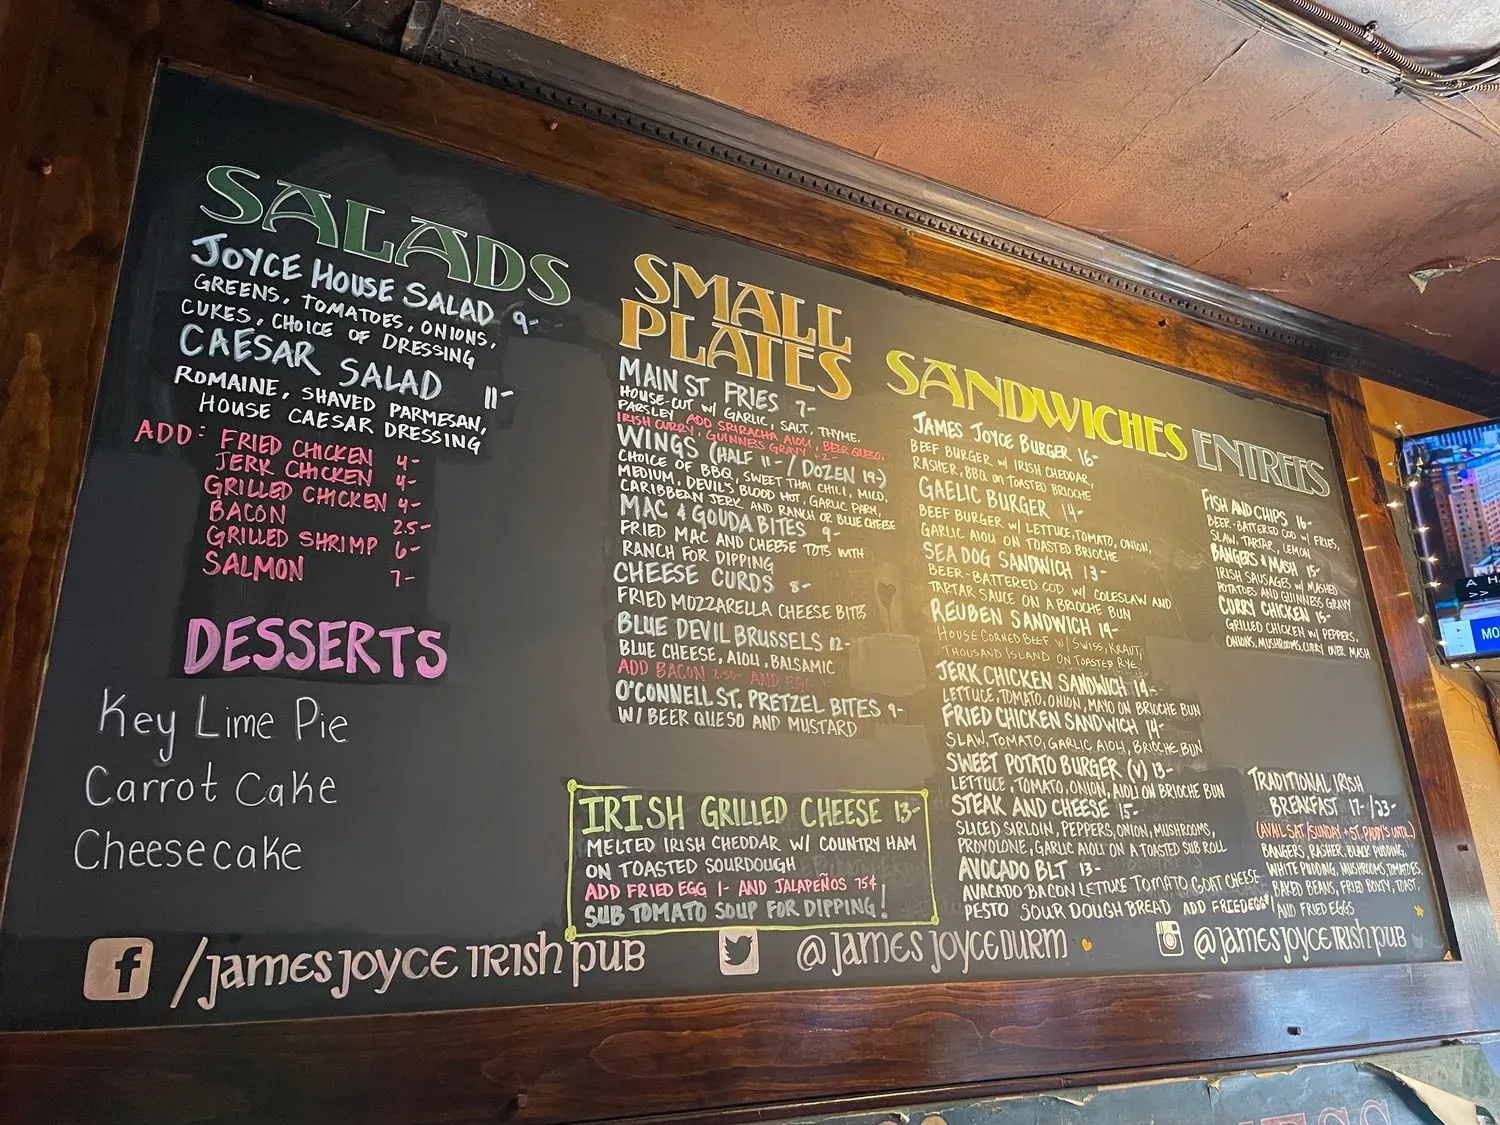 SALADS
JOYCE HOUSE SALAD 9-
GREENS, TOMATOES, ONIONS,
CUKES, CHOICE OF DRESSING
CAESAR SALAD 11-
ROMAINE, SHAVED PARMESAN,
HOUSE CAESAR DRESSING
ADD: FRIED CHICKEN 4-
JERK CHICKEN 4-
GRILLED CHICKEN 4-
BACON 2.5-
GRILLED SHRIMP 6-
SALMON 7-
DESSERTS
Key Lime Pie
Carrot Cake
Cheesecake
SMALL
PLATES
MAIN ST. FRIES 7-
HOUSE-CUT W/ GARLIC, SALT, THYME,
PARSLEY ADD SRIRACHA AIOLI, BEER QUESO,
IRISH CURRY, GUINNESS GRAVY +2-
WINGS (HALF 11-/DOZEN 19-)
CHOICE OF BBQ, SWEET THAI CHILI, MILD,
MEDIUM, DEVIL'S BLOOD HOT, GARLIC PARM,
CARIBBEAN JERK AND RANCH OR BLUE CHEESE
MAC & GOUDA BITES 9-
FRIED MAC AND CHEESE TOTS WITH
RANCH FOR DIPPING
CHEESE CURDS 8-
FRIED MOZZARELLA CHEESE BITES
BLUE DEVIL BRUSSELS 12-
BLUE CHEESE, AIOLI, BALSAMIC
ADD BACON 2.50- AND EGG
O'CONNELL ST. PRETZEL BITES 9-
W/ BEER QUESO AND MUSTARD
IRISH GRILLED CHEESE 13-
MELTED IRISH CHEDDAR W/ COUNTRY HAM
ON TOASTED SOURDOUGH
ADD FRIED EGG 1- AND JALAPEÑOS 75¢
SUB TOMATO SOUP FOR DIPPING!
SANDWICHES
JAMES JOYCE BURGER 16-
BEEF BURGER W/ IRISH CHEDDAR,
RASHER, BBQ ON TOASTED BRIOCHE
GAELIC BURGER 14-
BEEF BURGER W/ LETTUCE, TOMATO, ONION,
GARLIC AIOLI ON TOASTED BRIOCHE
SEA DOG SANDWICH 13-
BEER-BATTERED COD W/ COLESLAW AND
TARTAR SAUCE ON A BRIOCHE BUN
REUBEN SANDWICH 14-
HOUSE CORNED BEEF W/ SWISS, KRAUT,
THOUSAND ISLAND ON TOASTED RYE
JERK CHICKEN SANDWICH 14-
LETTUCE, TOMATO, ONION, MAYO ON BRIOCHE BUN
FRIED CHICKEN SANDWICH 14-
SLAW, TOMATO, GARLIC AIOLI, BRIOCHE BUN
SWEET POTATO BURGER (V) 13-
LETTUCE, TOMATO, ONION, AIOLI ON BRIOCHE BUN
STEAK AND CHEESE 15-
SLICED SIRLOIN, PEPPERS, ONION, MUSHROOMS,
PROVOLONE, GARLIC AIOLI ON A TOASTED SUB ROLL
AVOCADO BLT 13-
AVACADO BACON LETTUCE TOMATO GOAT CHEESE
PESTO SOURDOUGH BREAD ADD FRIED EGG 1
ENTREES
FISH AND CHIPS 16-
BEER-BATTERED COD W/ FRIES,
SLAW, TARTAR, LEMON
BANGERS & MASH 15-
IRISH SAUSAGES W/ MASHED
POTATOES AND GUINNESS GRAVY
CURRY CHICKEN 15-
GRILLED CHICKEN W/ PEPPERS,
ONIONS, MUSHROOMS, CURRY OVER MASH
TRADITIONAL IRISH
BREAKFAST 17-/23-
(AVAIL SAT/SUNDAY + ST. PADDY'S UNTIL)
BANGERS, RASHER, BLACK PUDDING,
WHITE PUDDING, MUSHROOMS, TOMATOES,
BAKED BEANS, FRIED BOXTY, TOAST,
AND FRIED EGGS
f /JamesJoyceIrishPub
@JamesJoyceDurm
@JamesJoyceIrishPub
A H
>>
MO